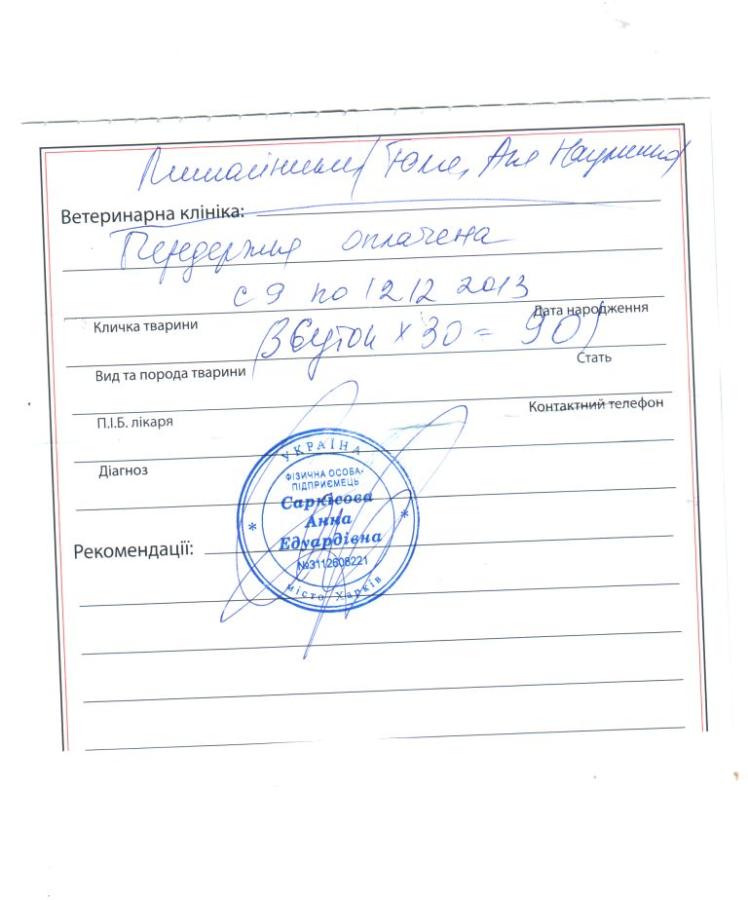 Ветеринарна клініка:
Передержка оплачена
с 9 по 12 12 2013
Кличка тварини Дата народження
(3 суток х 30 = 90)
Вид та порода тварини Стать
П.І.Б. лікаря Контактний телефон
Діагноз
УКРАЇНА
ФІЗИЧНА ОСОБА-
ПІДПРИЄМЕЦЬ
Саркісова
Анна
Едуардівна
№3112608221
місто Харків
Рекомендації: